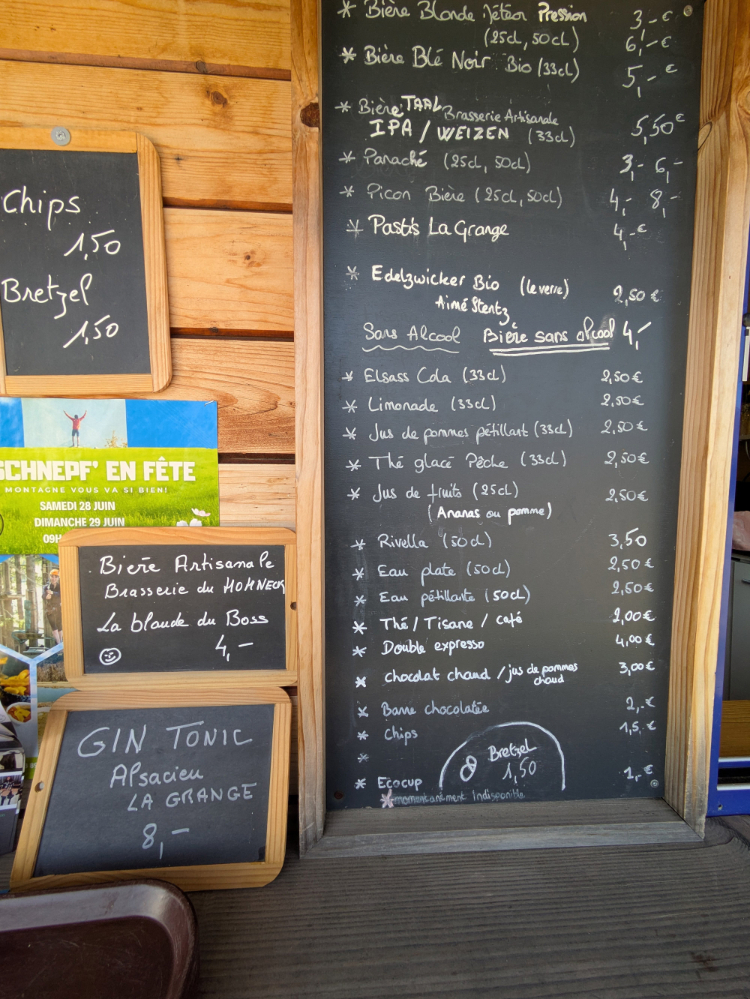 Chips
1,50
Bretzel
1,50
SCHNEPF' EN FÊTE
MONTAGNE VOUS VA SI BIEN!
SAMEDI 28 JUIN
DIMANCHE 29 JUIN
09H
Bière Artisanale
Brasserie du HOHNECK
La blonde du Boss
4,-
GIN TONIC
Alsacien
LA GRANGE
8,-
* Bière Blonde Météor Pression 3,-€
(25cl, 50cl) 6,-€
* Bière Blé Noir Bio (33cl) 5,-€
* Bière TAAL Brasserie Artisanale
IPA / WEIZEN (33cl) 5,50€
* Panaché (25cl, 50cl) 3,- 6,-
* Picon Bière (25cl, 50cl) 4,- 8,-
* Pastis La Grange 4,-€
* Edelzwicker Bio (le verre) 2,50 €
Aimé Stentz
Sans Alcool Bière sans alcool 4,-
* Elsass Cola (33cl) 2,50€
* Limonade (33cl) 2,50€
* Jus de pommes pétillant (33cl) 2,50€
* Thé glacé Pêche (33cl) 2,50€
* Jus de fruits (25cl) 2,50€
(Ananas ou pomme)
* Rivella (50cl) 3,50
* Eau plate (50cl) 2,50€
* Eau pétillante (50cl) 2,50€
* Thé / Tisane / café 2,00€
* Double expresso 4,00€
* chocolat chaud / jus de pommes chaud 3,00€
* Barre chocolatée 2,-€
* Chips 1,5 €
*
Bretzel
1,50
* Ecocup 1,-€
* momentanément Indisponible